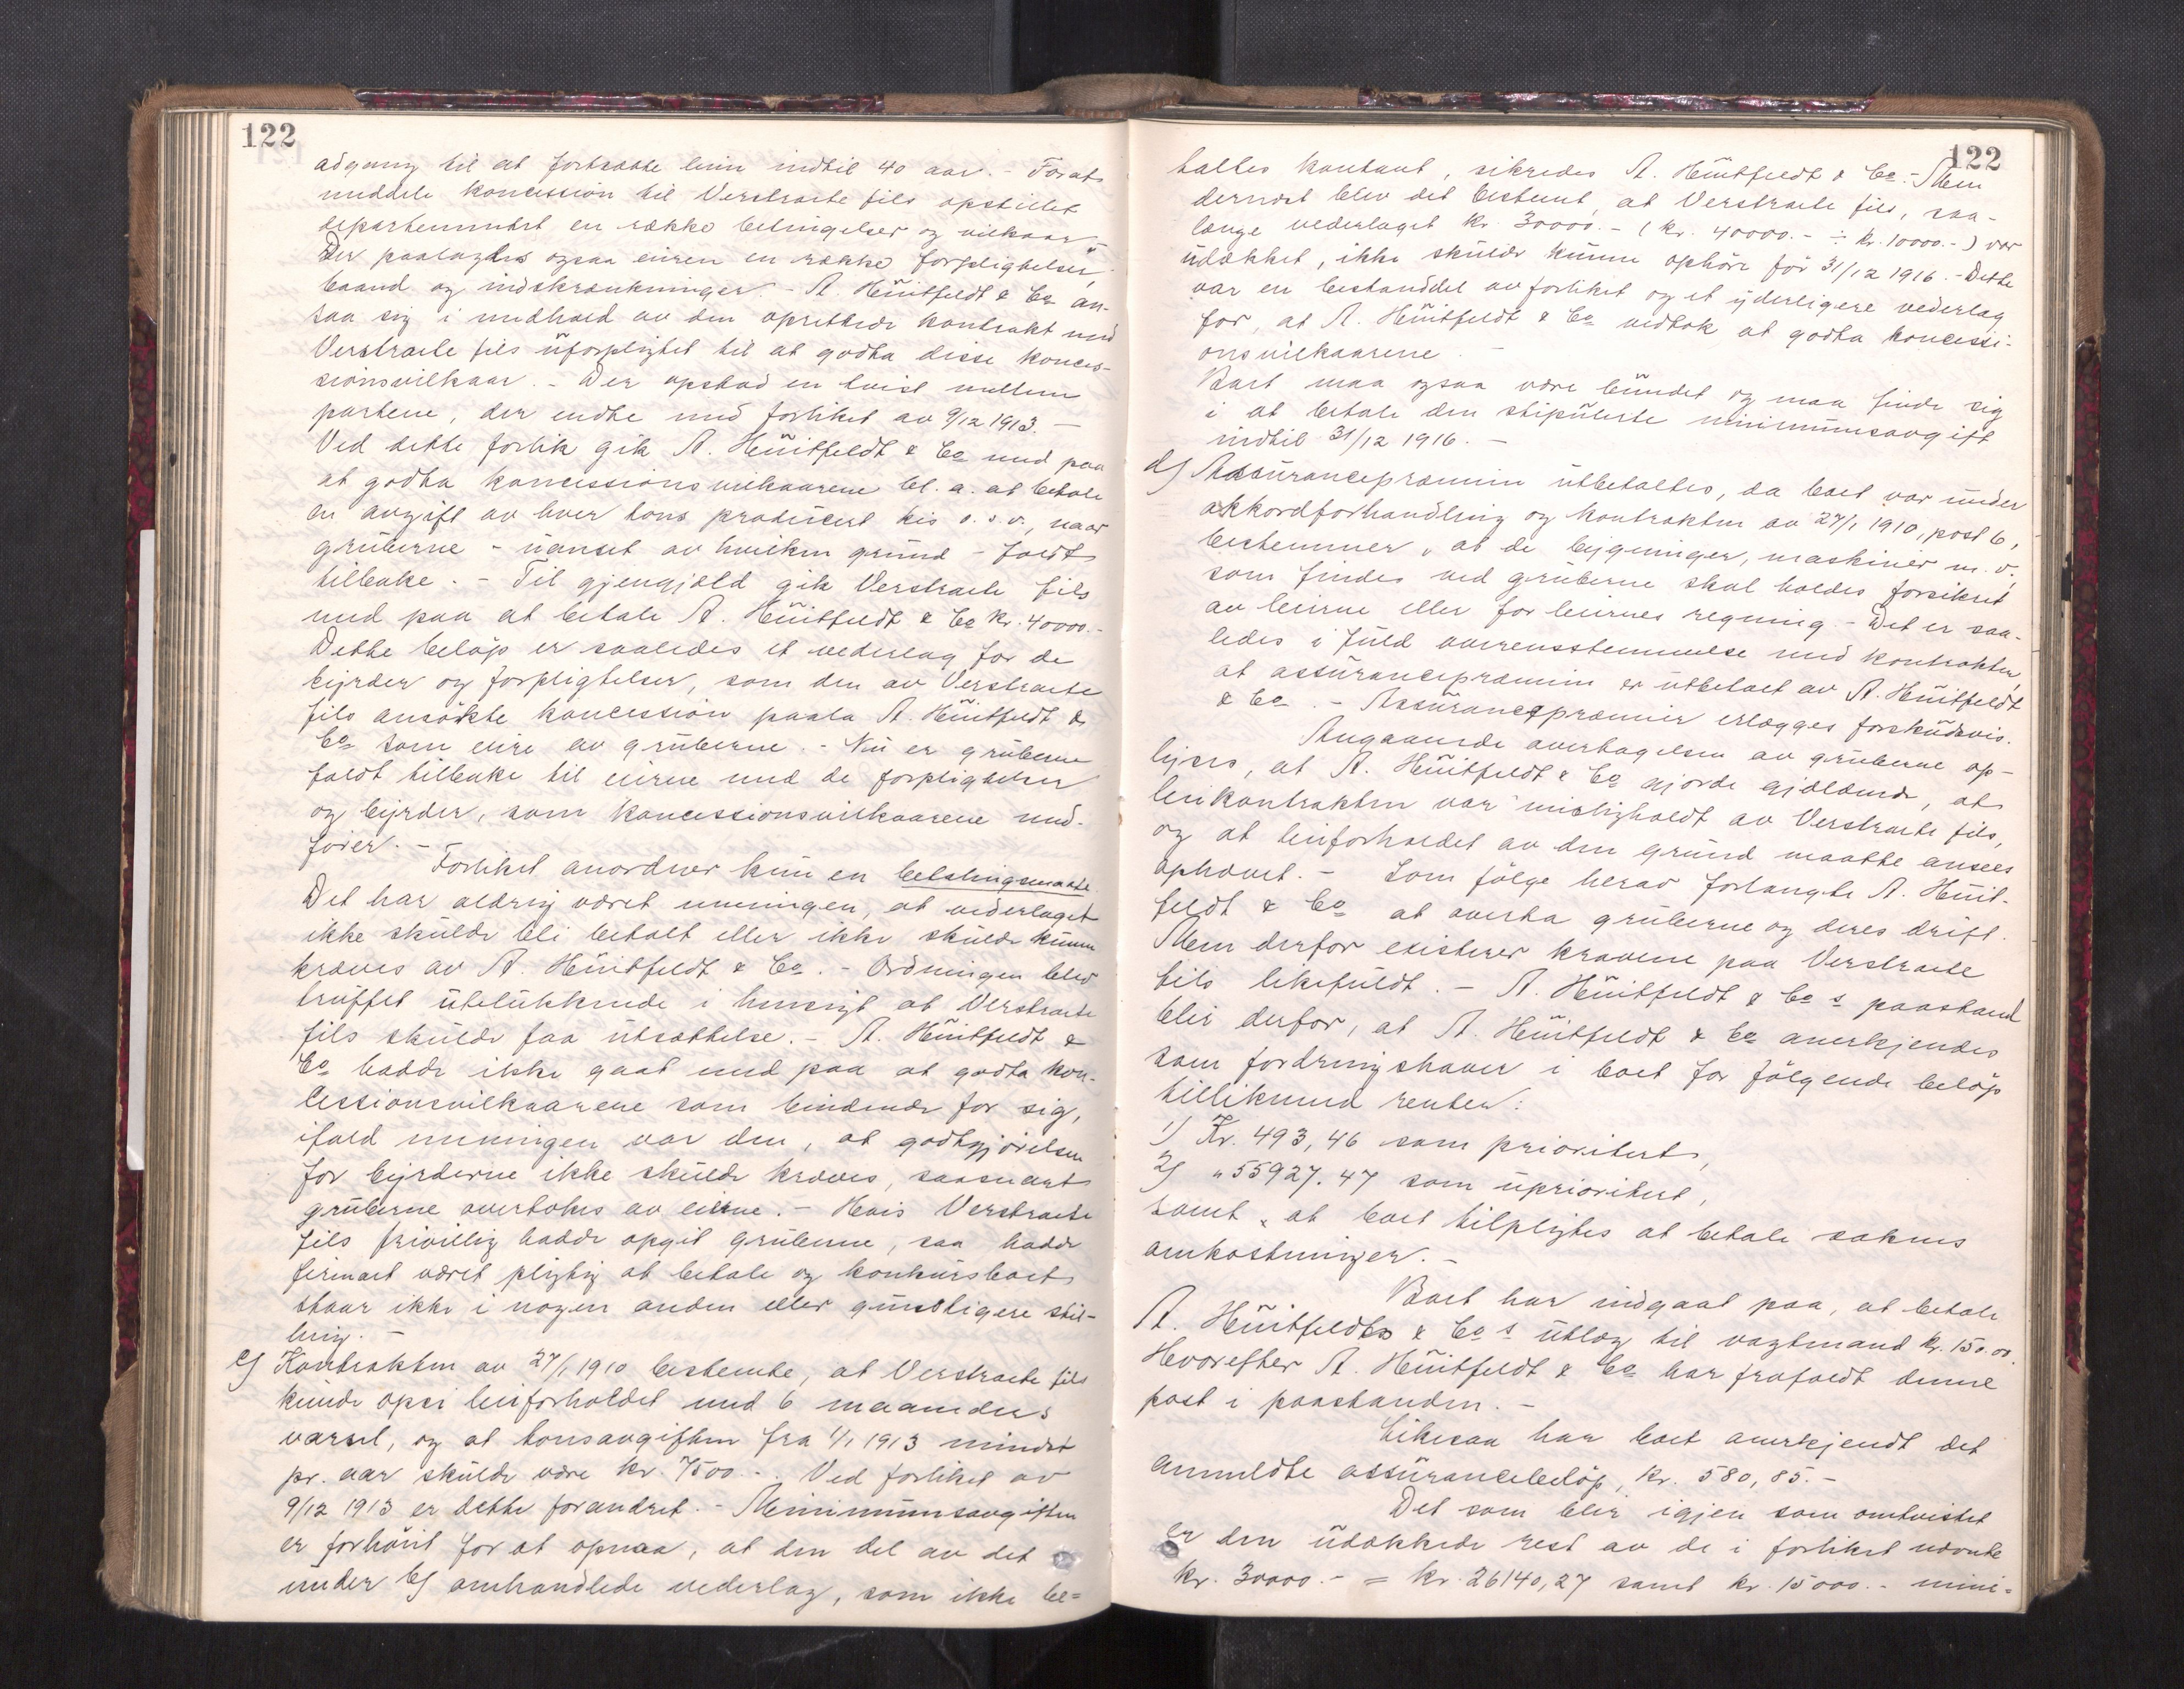 122
adgang til at fortsætte leien indtil 40 aar. - For at
meddele koncession til Verstraete fils opstillet
departementet en række betingelser og vilkaar.
Der paalagdes ogsaa eieren en række forpligtelser,
baand og indskrænkninger. - A. Hüitfeldt & Co an-
saa sig i medhold av den oprettede kontrakt med
Verstraete fils uforpligtet til at godta disse konces-
sionsvilkaar. - Der opstod en tvist mellem
partene, der endte med forliket av 9/12 1913. -
Ved dette forlik gik A. Hüitfeldt & Co med paa
at godta koncessionsvilkaarene bl. a. at betale
en avgift av hver tons produceret kis o. s. v., naar
gruberne - uanset av hvilken grund - faldt
tilbake. - Til gjengjæld gik Verstraete fils
med paa at betale A. Hüitfeldt & Co kr. 40000.-
Dette beløp er saaledes et vederlag for de
byrder og forpligtelser, som den av Verstraete
fils ansøkte koncession paala A. Hüitfeldt &
Co som eire av gruberne. - Nu er gruberne
faldt tilbake til eirene med de forpligtelser
og byrder, som koncessionsvilkaarene med-
fører. -
Forliket anordner kun en betalingsmaate.
Det har aldrig været meningen, at vederlaget
ikke skulde bli betalt eller ikke skulde kunne
kræves av A. Hüitfeldt & Co. - Ordningen blev
truffet utelukkende i hensigt at Verstraete
fils skulde faa utsættelse. - A. Hüitfeldt &
Co hadde ikke gaat med paa at godta kon-
cessionsvilkaarene som bindende for sig,
ifald meningen var den, at godtgjørelsen
for byrderne ikke skulde kræves, saasnart
gruberne overtokes av eierne. - Hvis Verstraete
fils frivillig hadde opgit gruberne, saa hadde
firmaet været pligtig at betale og konkursboet
staar ikke i nogen anden eller gunstigere stil-
ling. -
c) Kontrakten av 27/1 1910 bestemte, at Verstraete fils
kunde opsi leieforholdet med 6 maaneders
varsel, og at tonsavgiften fra 1/1 1913 mindst
pr. aar skulde være kr. 7500.-. Ved forliket av
9/12 1913 er dette forandret. - Minimumsavgiften
er forhøiet for at opnaa, at den del av det
under b) omhandlede vederlag, som ikke be=
122
taltes kontant, sikredes A. Hüitfeldt & Co. - Men
dernæst blev det bestemt, at Verstraete fils, saa-
længe vederlaget kr. 30000.- (kr. 40000.- ÷ kr. 10000.-) var
udækket, ikke skulde kunne ophøre før 31/12 1916. - Dette
var en bestanddel av forliket og et yderligere vederlag
for, at A. Hüitfeldt & Co vedtok at godta koncessi-
onsvilkaarene. -
Boet maa ogsaa være bundet og maa finde sig
i at betale den stipulerte minimumsavgift
indtil 31/12 1916. -
d) Assurancepræmien utbetaltes, da boet var under
akkordforhandling og kontrakten av 27/1 1910, post 6,
bestemmer, at de bygninger, maskiner m. v.,
som findes ved gruberne skal holdes forsikret
av leierne eller for leiernes regning. - Det er saa-
ledes i fuld overensstemmelse med kontrakten,
at assurancepræmien er utbetalt av A. Hüitfeldt
& Co. - Assurancepræmier erlægges forskudsvis.
Angaaende overtagelsen av gruberne op-
lyses, at A. Hüitfeldt & Co gjorde gjældende, at
leiekontrakten var misligholdt av Verstraete fils,
og at leieforholdet av den grund maatte ansees
ophævet. - Som følge herav forlangte A. Hüit-
feldt & Co at overta gruberne og deres drift.
Men derfor existerer kravene paa Verstraete
fils likefuldt. - A. Hüitfeldt & Co s paastand
blir derfor, at A. Hüitfeldt & Co anerkjendes
som fordringshaver i boet for følgende beløp
tillikemed renter:
1) Kr. 493,46 som prioritert,
2) " 55927.47 som uprioritert,
samt, at boet tilpligtes at betale sakens
omkostninger. -
Boet har indgaat paa, at betale
A. Hüitfeldts & Co s utlæg til vagtmand kr. 150.00.
Hvorefter A. Hüitfeldt & Co har frafaldt denne
post i paastanden. -
Likesaa har boet anerkjendt det
anmeldte assurancebeløp, kr. 580,85.-
Det som blir igjen som omtvistet
er den udækkede rest av de i forliket nævnte
kr. 30000.- = kr. 26140,27 samt kr. 15000.- mini=